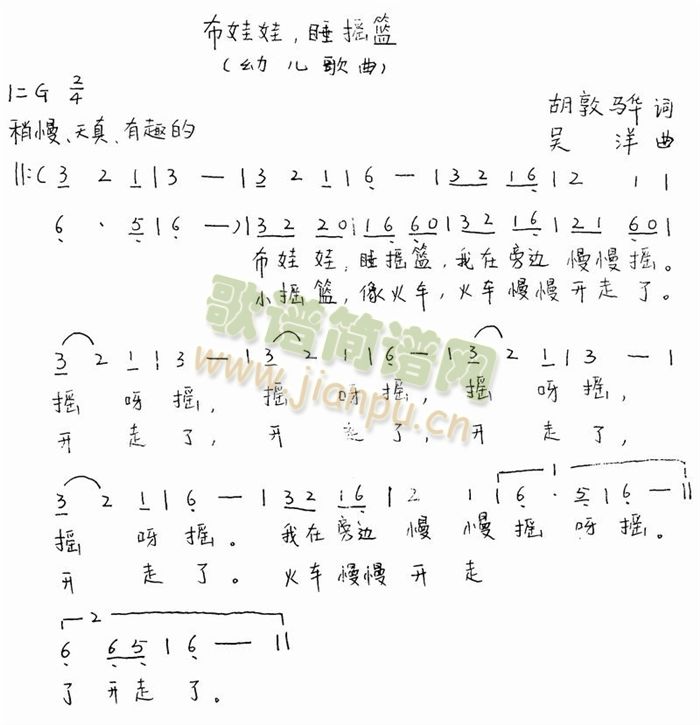 布娃娃,睡摇篮
(幼儿歌曲)
1=G 2/4
胡敦骅 词
稍慢、天真、有趣的
吴洋 曲
||:( 3 2 1 | 3 — | 3 2 1 | 6 — | 3 2 1 6 | 2 1 |
6 · 5 | 6 — ) | 3 2 2 0 | 1 6 6 0 | 3 2 1 6 | 2 1 6 0 |
布娃娃,睡摇篮,我在旁边 慢慢摇。
小摇篮,像火车,火车慢慢开走了。
3 2 1 | 3 — | 3 2 1 | 6 — | 3 2 1 | 3 — |
摇 呀摇, 摇 呀摇, 摇 呀摇,
开 走了, 开 走了, 开 走了,
3 2 1 | 6 — | 3 2 1 6 | 2 1 | 1 6 · 5 | 6 — ||
摇 呀摇。 我在旁边 慢 慢摇 呀摇。
开 走了。 火车慢慢 开 走
2
6 6 5 | 6 — ||
了 开走 了。
歌谱简谱网
www.jianpu.cn